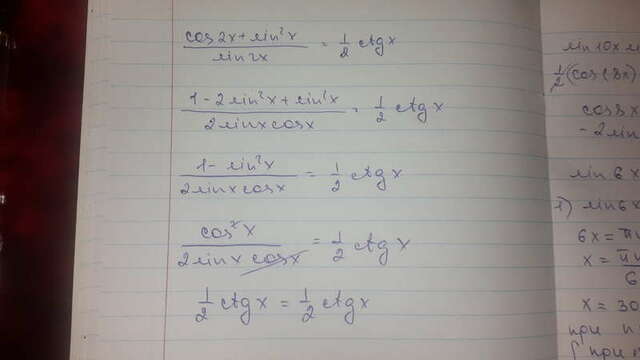 cos2x + sin²x / sin2x = 1/2 ctgx
1 - 2sin²x + sin²x / 2sinxcosx = 1/2 ctgx
1 - sin²x / 2sinxcosx = 1/2 ctgx
cos²x / 2sinx cosx = 1/2 ctgx
1/2 ctgx = 1/2 ctgx
sin10x
1/2 (cos(8x)
cos8x
- 2sin
sin6x
1) sin6x
6x = πn
x = πn/6
x = 30
при n
при